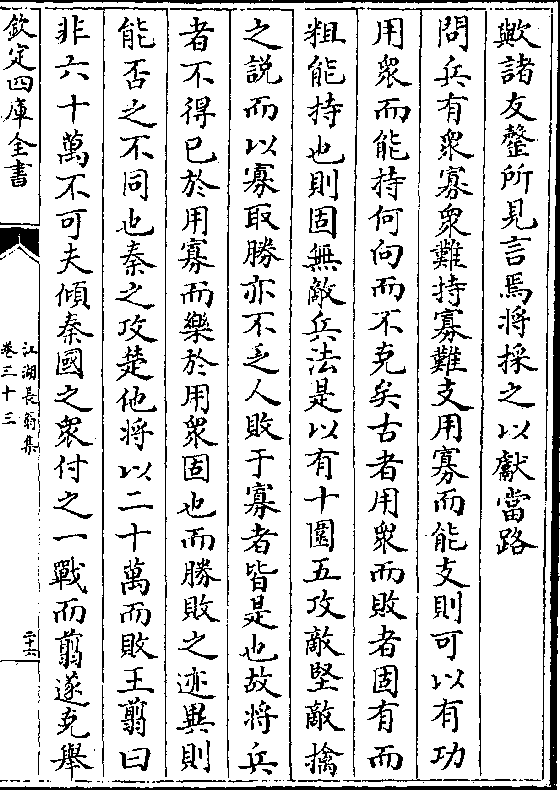 歟諸友罄所見言焉將採之以獻當路
問兵有衆寡衆難持寡難支用寡而能支則可以有功
用衆而能持何向而不克矣古者用衆而敗者固有而
粗能持也則固無敵兵法是以有十圍五攻敵堅敵擒
之說而以寡取勝亦不乏人敗于寡者皆是也故將兵
者不得已於用寡而樂於用衆固也而勝敗之迹異則
能否之不同也秦之攻楚他將以二十萬而敗王翦曰
非六十萬不可夫傾秦國之衆付之一戰而翦遂克舉
欽定四庫全書
江湖長翁集
卷三十三
二十六